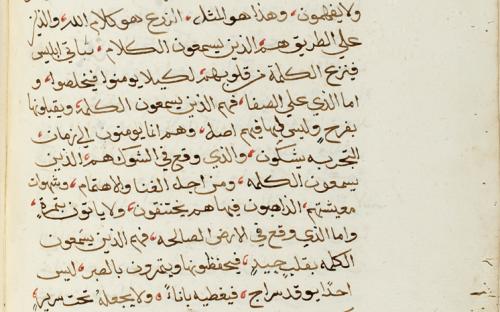 ولا يفهمون، وهذا هو المثل، الزرع هو كلام الله، والذين
علي الطريق هم الذين يسمعون الكلام، فياتي ابليس
فينزع الكلمة من قلوبهم، لكيلا يومنوا فيخلصوا، و
اما الذي علي الصفا، فهم الذين يسمعون الكلمة، ويقبلونها
بفرح وليس لها فيهم اصل، وهم انما يومنون الي زمان،
التجربه يشكون، والذي وقع في الشوك هم، الذين
يسمعون الكلمه، ومن اجل الغنا والاهتمام، وشهوات
معيشتهم، الذاهبون فيها هم يختنقون، ولا ياتون بثمرة،
واما الذي وقع في الارض الصالحه، فهم الذين يسمعون
الكلمه بقلب جيد، فيحفظونها ويثمرون بالصبر، ليس
احدًا يوقد سراج، فيغطيه باناء، ولا يجعله تحت سرير،